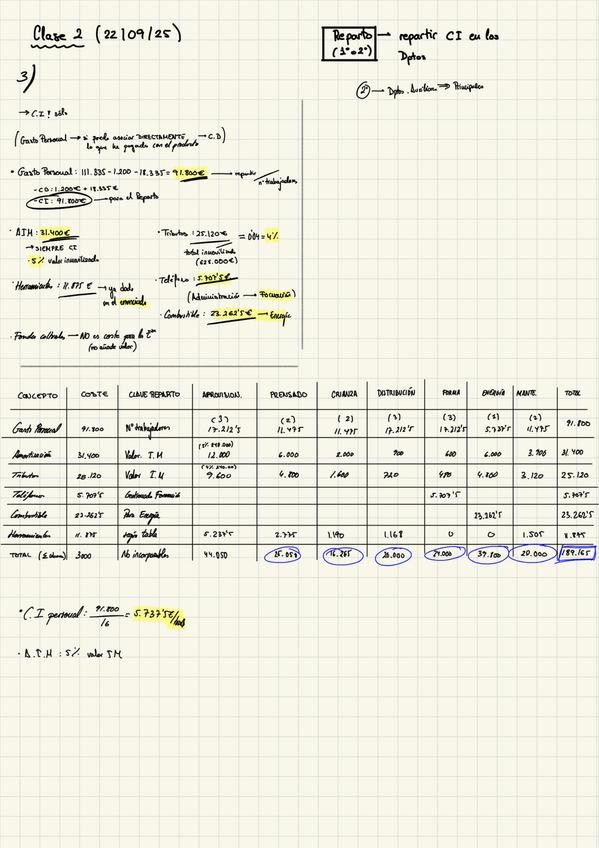 Clase 2 (22/09/25)
Reparto → repartir CI en los
(1º o 2º) Dptos
2º → Dptos. Auxiliares ⇒ Principales
3)
→ C.I ! sólo
(Gasto Personal → si puedo asociar DIRECTAMENTE → C.D)
lo que he pagado con el producto
• Gasto Personal: 111.335 - 1.200 - 18.335 = 91.800€ → repartir
nº trabajadores
- CD: 1.200€ + 18.335€
- CI: 91.800€ → para el Reparto
· AIM: 31.400€
→ SIEMPRE CI
· 5% valor inmovilizado
· Herramientas: 11.875€ → ya dado
en el enunciado
· Fondos → NO es coste para la
(no añade valor)
· Tributos: 25.120€ = 0'04 = 4%
total inmovilizado
(628.000€)
· Teléfono: 5.707'5€
(Administración → Formación)
· Combustible: 23.262'5€ → Energía
CONCEPTO COSTE CLAVE REPARTO APROVISION. PRENSADO CRIANZA DISTRIBUCIÓN FORMA ENERGÍA MANTE. TOTAL
(3) (2) (2) (3) (3) (1) (2)
Gasto Personal 91.800 Nº trabajadores 17.212'5 11.475 11.475 17.212'5 17.212'5 5.737'5 11.475 91.800
(5% 240.000)
Amortización 31.400 Valor. I.M 12.000 6.000 2.000 900 600 6.000 3.900 31.400
(4% 240.000)
Tributos 25.120 Valor I.M 9.600 4.800 1.600 720 480 4.800 3.120 25.120
Teléfonos 5.707'5 Formació 5.707'5 5.707'5
Combustible 23.262'5 Para Energía 23.262'5 23.262'5
Herramientas 11.875 según tabla 5.237'5 2.775 1.190 1.168 0 0 1.505 11.875
TOTAL (Σ) 3000 No incorporables 44.050 25.050 16.265 20.000 24.000 39.800 20.000 189.165
• C.I personal: 91.800 / 16 = 5.737'5€/trab
· A.I.M: 5% valor IM